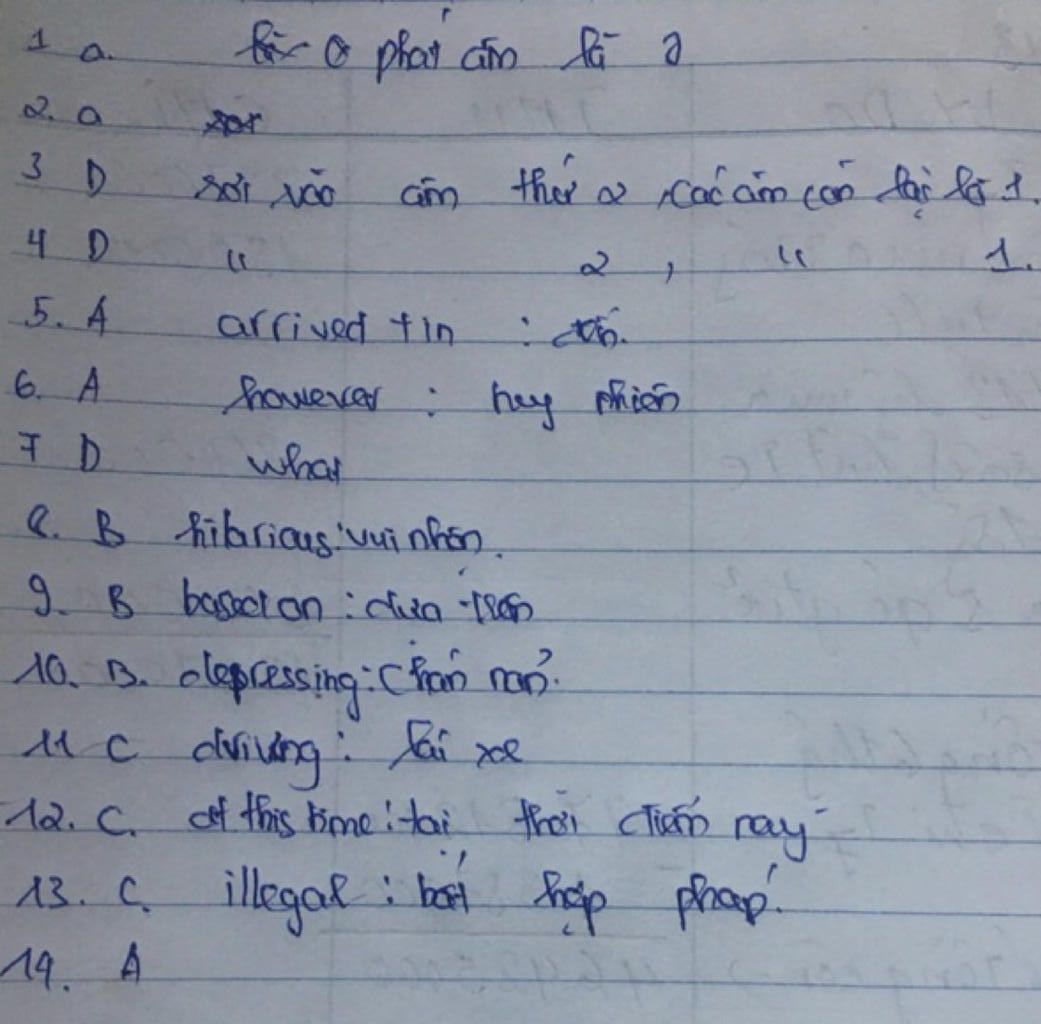 1 a. từ o phát âm là ə
2. a
3 D rơi vào âm thứ 2, các âm còn lại là 1.
4 D " 2, " 1.
5. A arrived + in : đến.
6. A however : tuy nhiên
7 D what
8. B hilarious: vui nhộn.
9. B based on : dựa trên
10. B. depressing: chán nản.
11 C driving: lái xe
12. C. at this time: tại thời điểm này
13. C. illegal : bất hợp pháp.
14. A